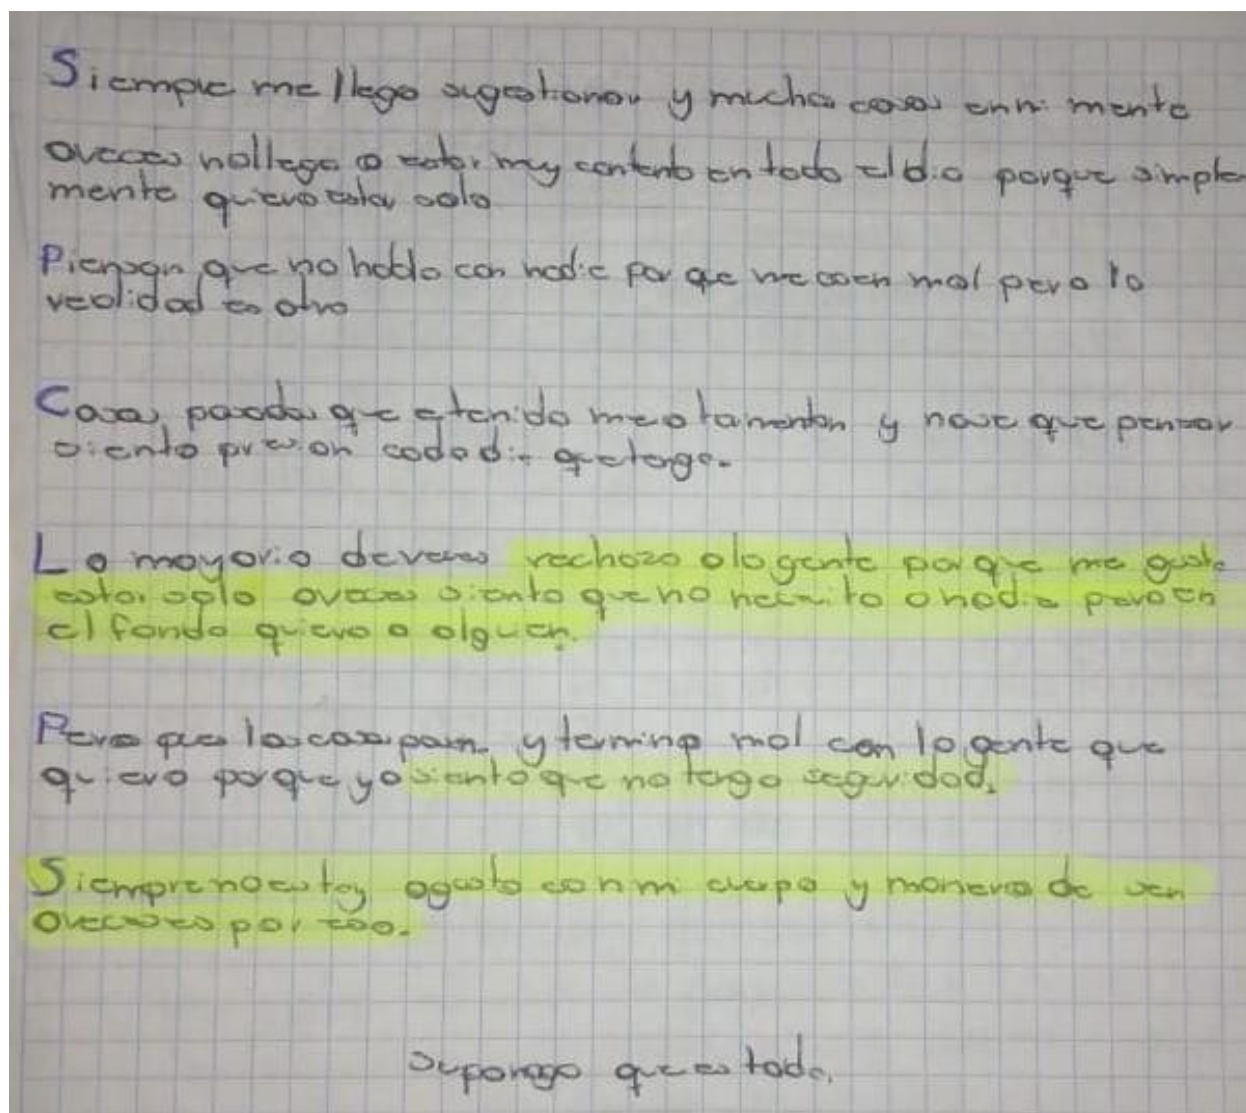 Siempre me llego sugestionar y muchas cosas en mi mente
aveces no llego a estar muy contento en todo el dia porque simple
mente quiero estar solo
Piensan que no hablo con nadie por que me caen mal pero la
realidad es otra
Cosas pasadas que e tenido me atormentan y no se que pensar
siento presion cada dia que tengo.
La mayoria de veces rechazo a la gente porque me gusta
estar solo aveces siento que no necesito a nadie pero en
el fondo quiero a alguien.
Pero pues las cosas pasan y termino mal con la gente que
quiero porque yo siento que no tengo seguridad.
Siempre no estoy agusto con mi cuerpo y manera de ver
aveces por eso.
supongo que es todo.